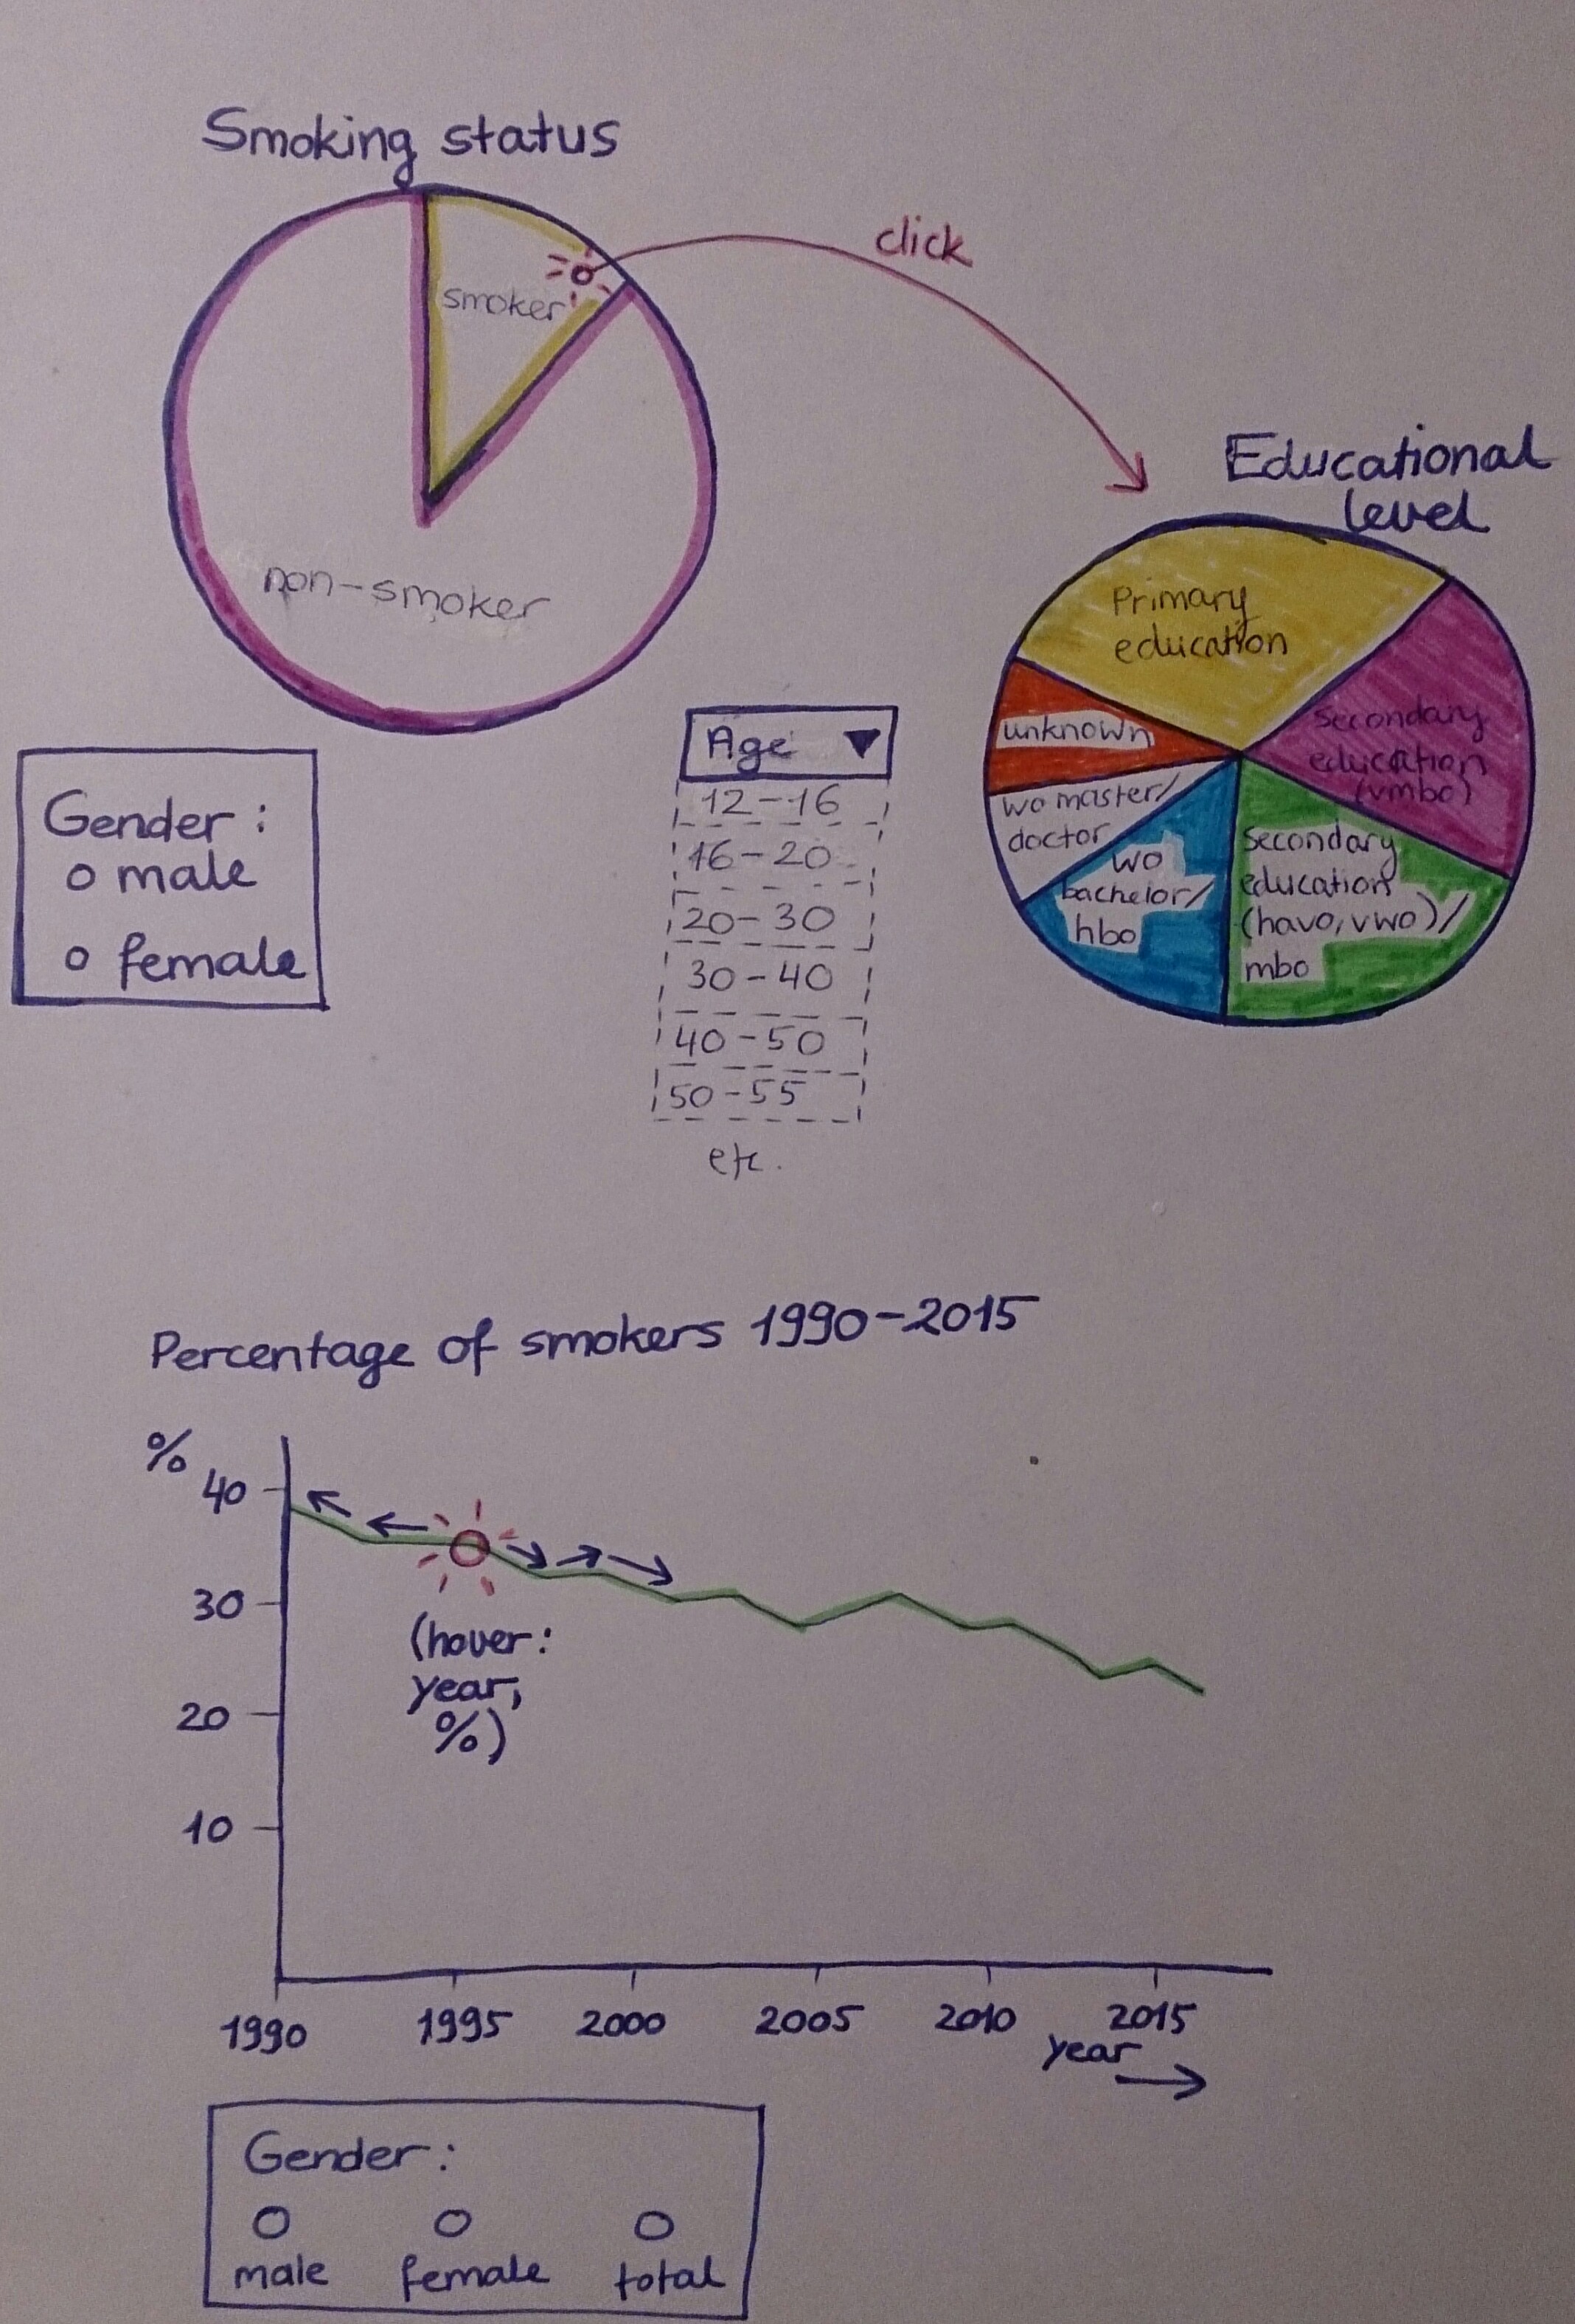 Smoking status
click
smoker
non-smoker
Educational
level
Primary
education
Secondary
education
(vmbo)
unknown
wo master/
doctor
wo
bachelor/
hbo
Secondary
education
(havo, vwo)/
mbo
Gender:
o male
o female
Age ▼
12-16
16-20
20-30
30-40
40-50
50-55
etc.
Percentage of smokers 1990-2015
%
40
30
20
10
(hover:
year,
%)
1990 1995 2000 2005 2010 2015
year →
Gender:
male female total